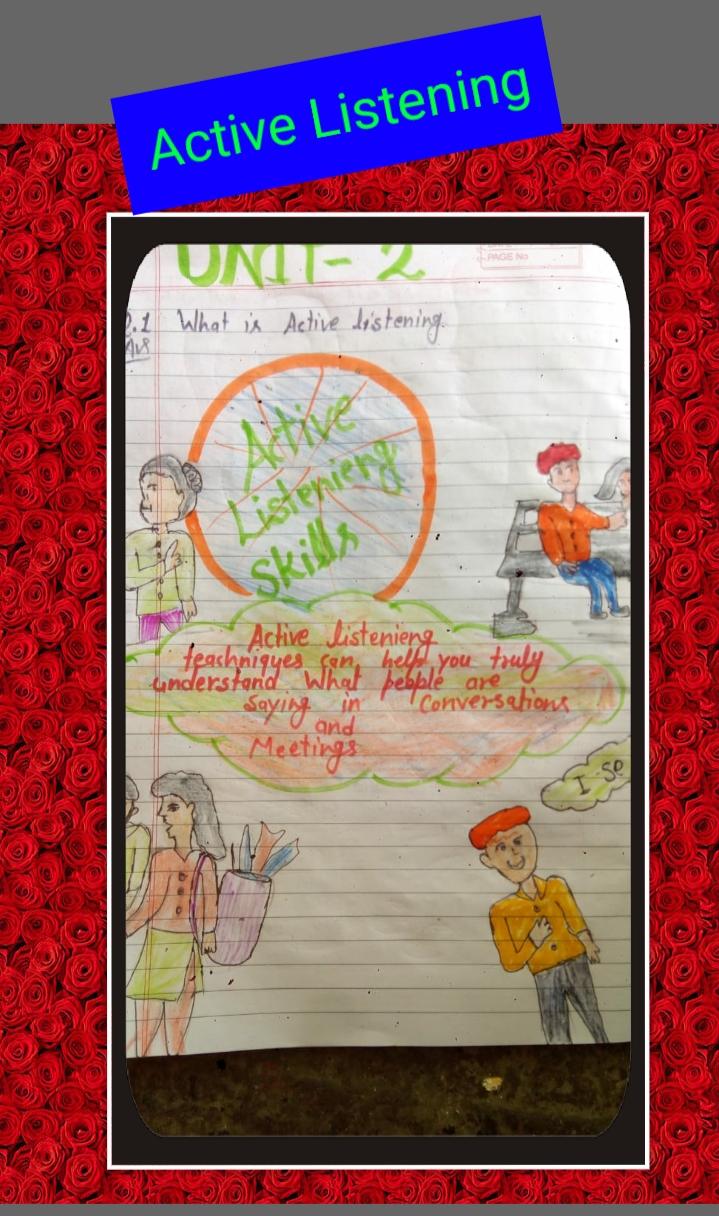 Active Listening
UNIT- 2
PAGE No
Q.1 What is Active listening.
Ans
Active
Listenieng
Skills
Active listenieng
teachniques can help you truly
understand What people are
saying in Conversations
and
Meetings
I se